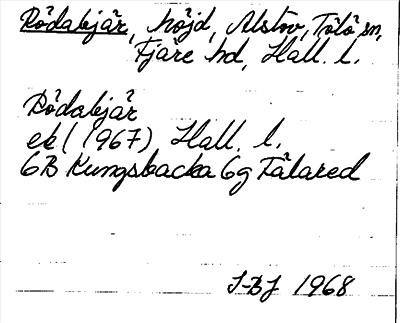 Rödabjär, höjd, Alstov, Tölö sn,
Fjäre hd, Hall. l.
Rödabjär
ek (1967) Hall. l.
6B Kungsbacka 6g Fälared
S-BJ 1968